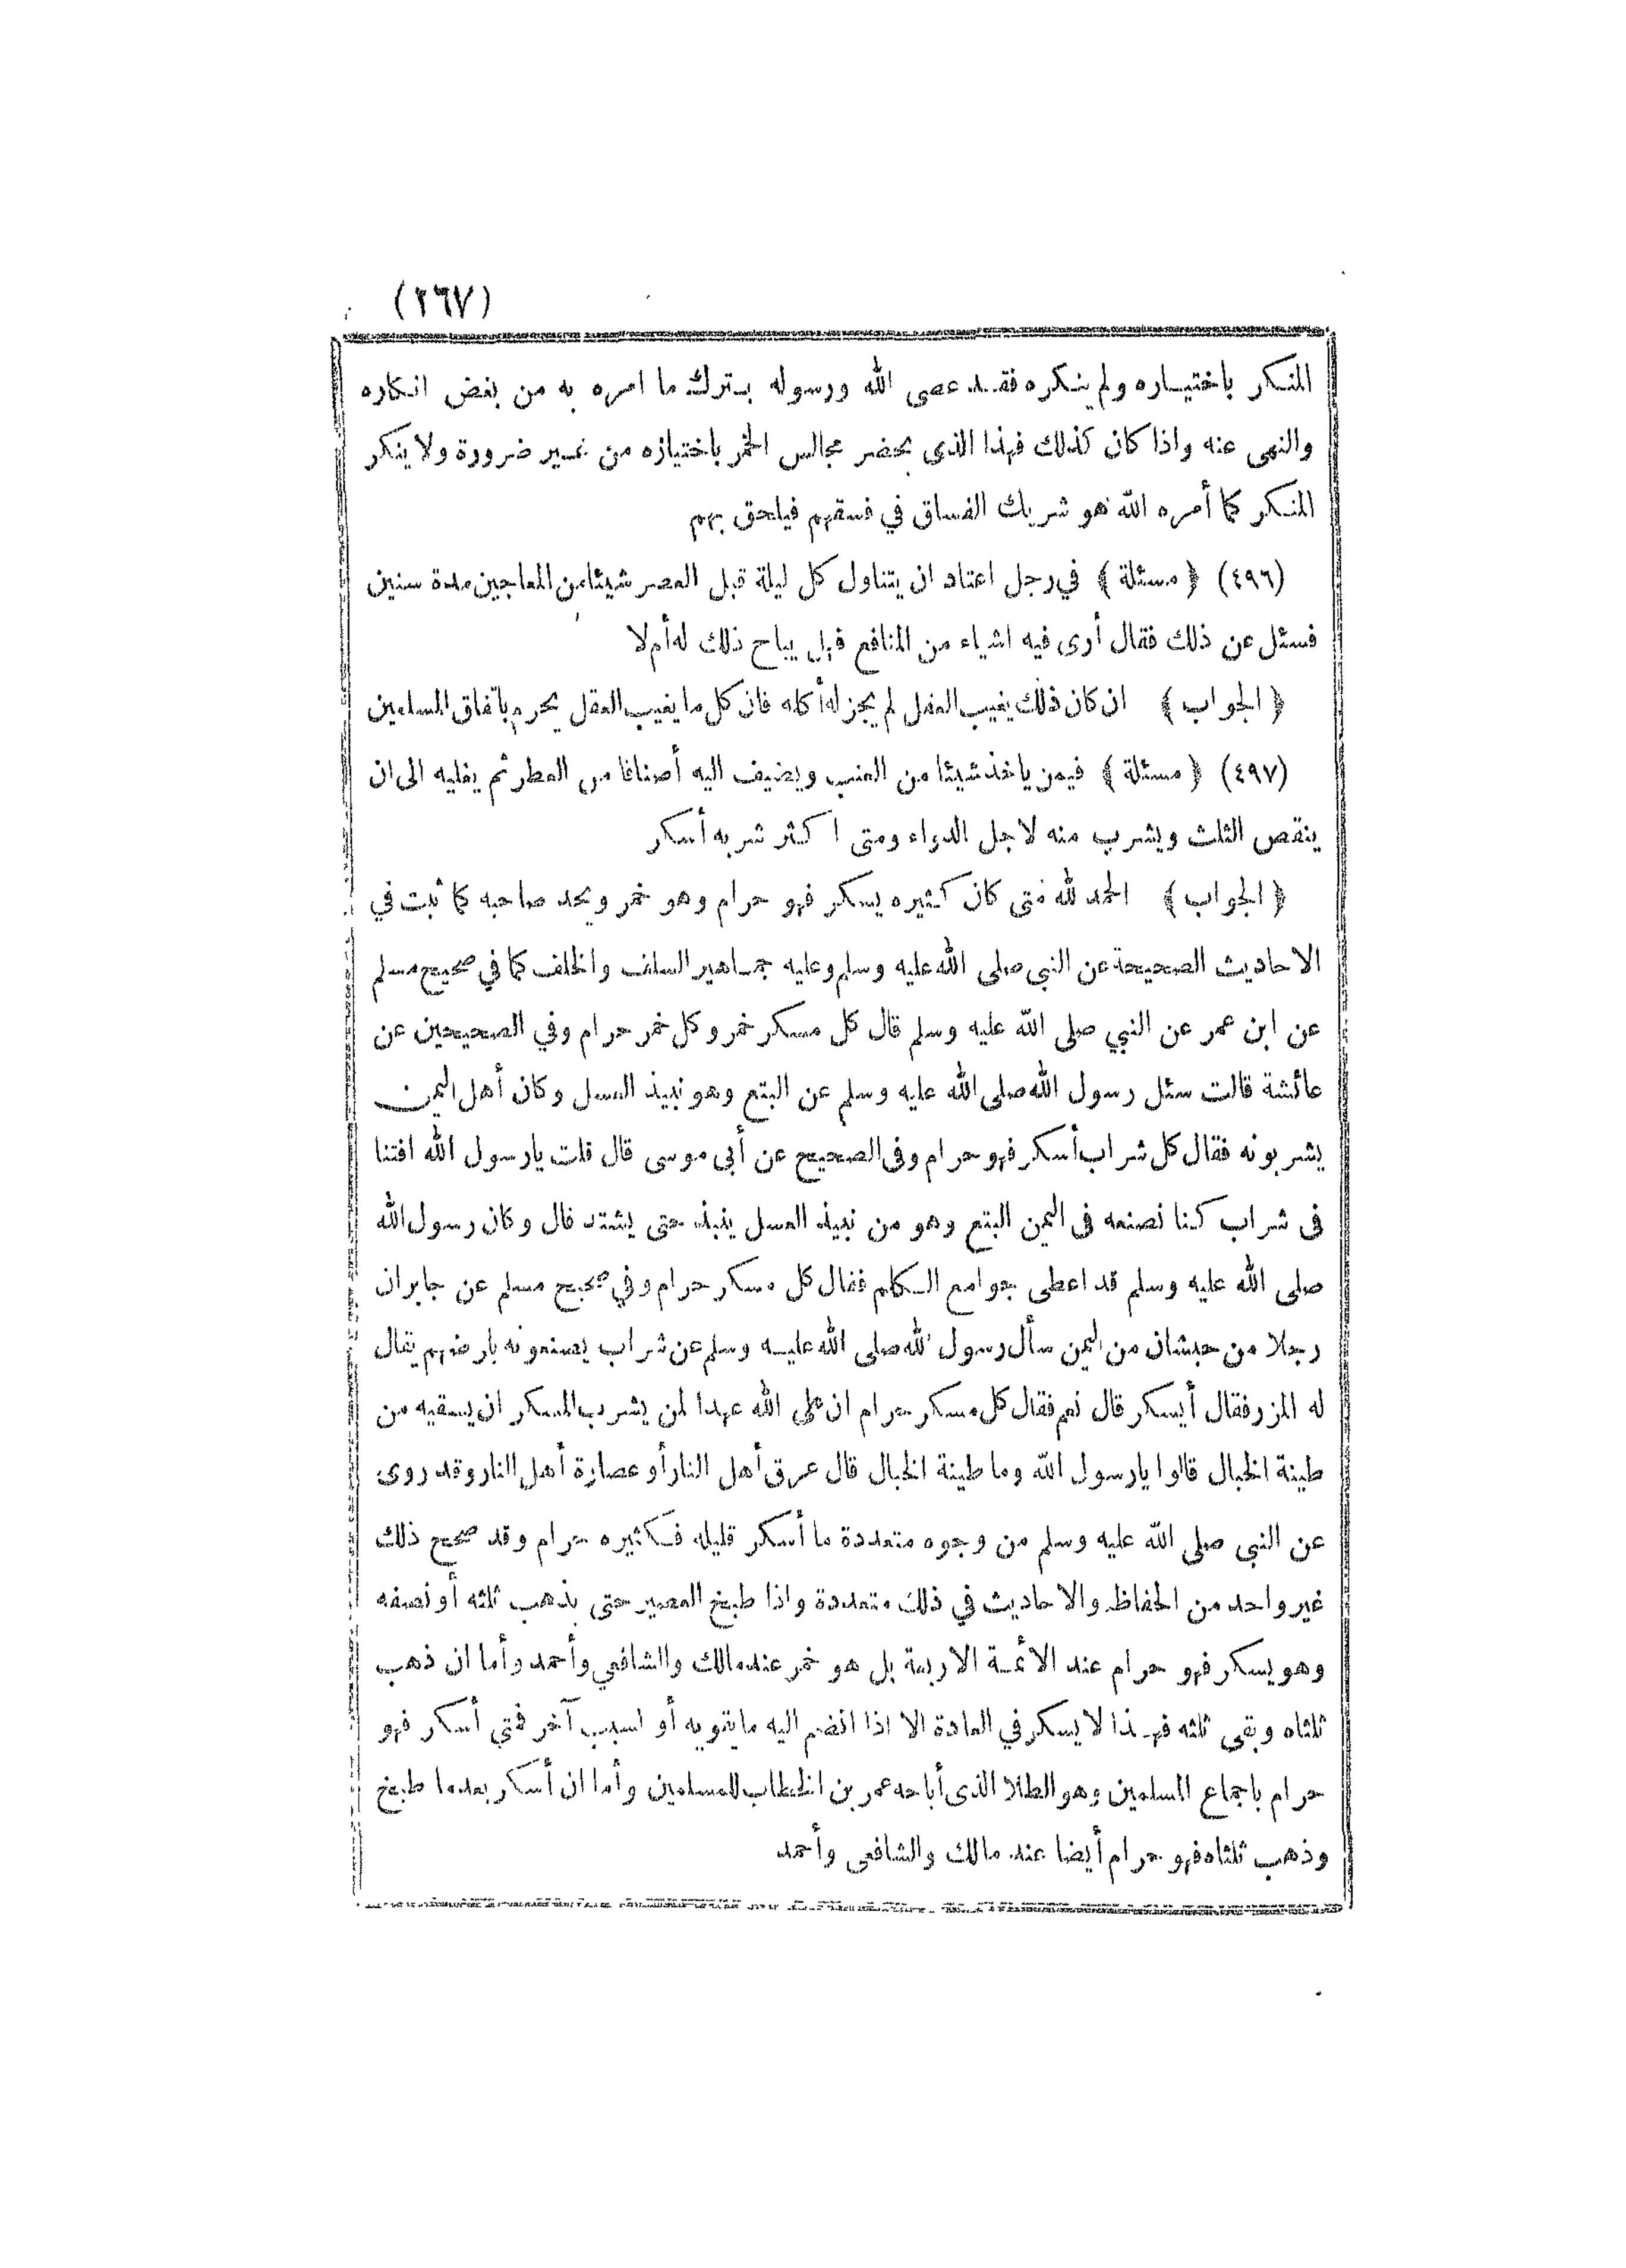 (٢٦٧)
المنكر باختياره ولم ينكره فقد عصى الله ورسوله بترك ما امره به من بغض انكاره
والنهى عنه واذا كان كذلك فهذا الذى يحضر مجالس الخمر باختيازه من غير ضرورة ولا ينكر
المنكر كما أمره الله هو شريك الفساق في فسقهم فيلحق بهم
(٤٩٦) ﴿ مسئلة ﴾ في رجل اعتاد ان يتناول كل ليلة قبل العصر شيئا من المعاجين مدة سنين
فسئل عن ذلك فقال أرى فيه اشياء من المنافع فهل يباح ذلك له أم لا
﴿ الجواب ﴾ ان كان ذلك يغيب العقل لم يجز له أكله فان كل ما يغيب العقل يحرم باتفاق المسلمين
(٤٩٧) ﴿ مسئلة ﴾ فيمن ياخذ شيئا من العنب ويضيف اليه أصنافا من العطر ثم يغليه الى ان
ينقص الثلث ويشرب منه لاجل الدواء ومتى اكثر شربه أسكر
﴿ الجواب ﴾ الحمد لله متى كان كثيره يسكر فهو حرام وهو خمر ويحد صاحبه كما ثبت في
الاحاديث الصحيحة عن النبى صلى الله عليه وسلم وعليه جماهير السلف والخلف كما في صحيح مسلم
عن ابن عمر عن النبي صلى الله عليه وسلم قال كل مسكر خمر وكل خمر حرام وفي الصحيحين عن
عائشة قالت سئل رسول الله صلى الله عليه وسلم عن البتع وهو نبيذ العسل وكان أهل اليمن
يشربونه فقال كل شراب أسكر فهو حرام وفى الصحيح عن أبى موسى قال قلت يا رسول الله افتنا
فى شراب كنا نصنعه فى اليمن البتع وهو من نبيذ العسل ينبذ حتى يشتد قال وكان رسول الله
صلى الله عليه وسلم قد اعطى جوامع الكلم فقال كل مسكر حرام وفي صحيح مسلم عن جابر ان
رجلا من حبشان من اليمن سأل رسول الله صلى الله عليه وسلم عن شراب يصنعونه بارضهم يقال
له المزر فقال أيسكر قال نعم فقال كل مسكر حرام ان على الله عهدا لمن يشرب المسكر ان يسقيه من
طينة الخبال قالوا يا رسول الله وما طينة الخبال قال عرق أهل النار أو عصارة أهل النار وقد روى
عن النبى صلى الله عليه وسلم من وجوه متعددة ما أسكر قليله فكثيره حرام وقد صحح ذلك
غير واحد من الحفاظ والاحاديث في ذلك متعددة واذا طبخ العصير حتى يذهب ثلثه أو نصفه
وهو يسكر فهو حرام عند الائمة الاربعة بل هو خمر عند مالك والشافعي وأحمد وأما ان ذهب
ثلثاه وبقى ثلثه فهذا لا يسكر في العادة الا اذا انضم اليه ما يقويه أو لسبب آخر فمتي أسكر فهو
حرام باجماع المسلمين وهو الطلا الذى أباحه عمر بن الخطاب للمسلمين وأما ان أسكر بعد ما طبخ
وذهب ثلثاه فهو حرام أيضا عند مالك والشافعى وأحمد